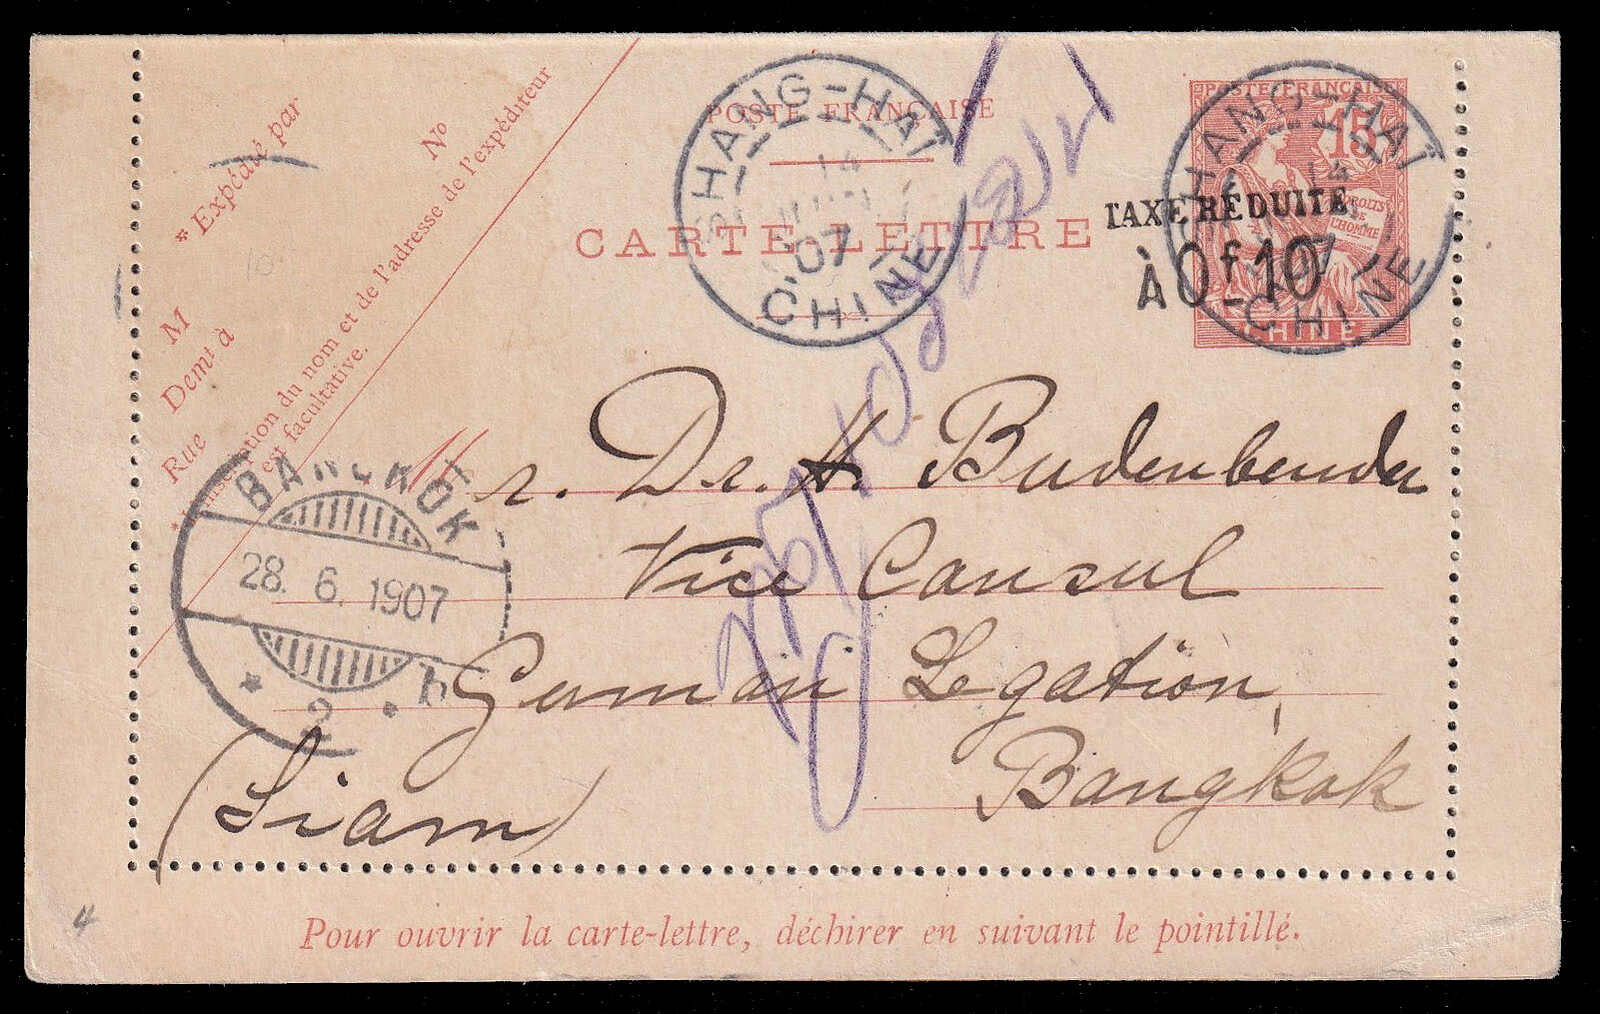 * Expédié par
No
M
Demt à
Rue
* L'inscription du nom et de l'adresse de l'expéditeur
est facultative.
POSTE FRANÇAISE
CARTE-LETTRE
SHANG-HAÏ
14
07
CHINE
POSTE FRANÇAISE
15
DROITS
DE
L'HOMME
CHINE
TAXE RÉDUITE
À 0f.10
SHANG-HAÏ
14
07
CHINE
Dr. H. Budenbender
Vice Consul
German Legation,
Bangkok
(Siam)
BANGKOK
28. 6. 1907
* 2 *
Pour ouvrir la carte-lettre, déchirer en suivant le pointillé.